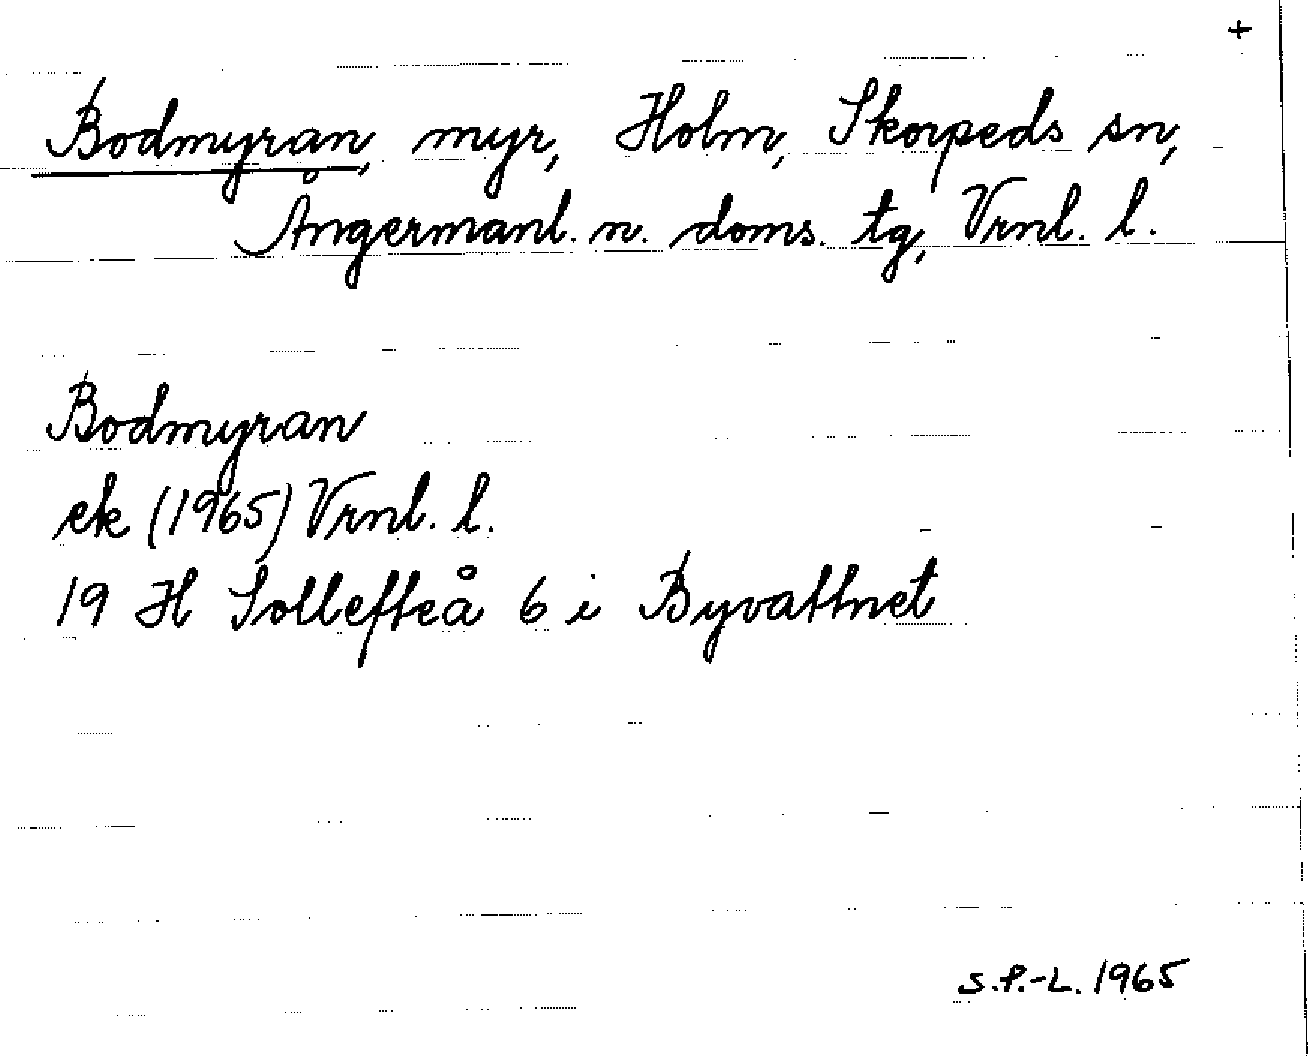 +
Bodmyran, myr, Holm, Skorpeds sn,
Ångermanl. n. doms. tg, Vrnl. l.
Bodmyran
ek (1965) Vrnl. l.
19 H Sollefteå 6 i Byvattnet
S.P.-L. 1965